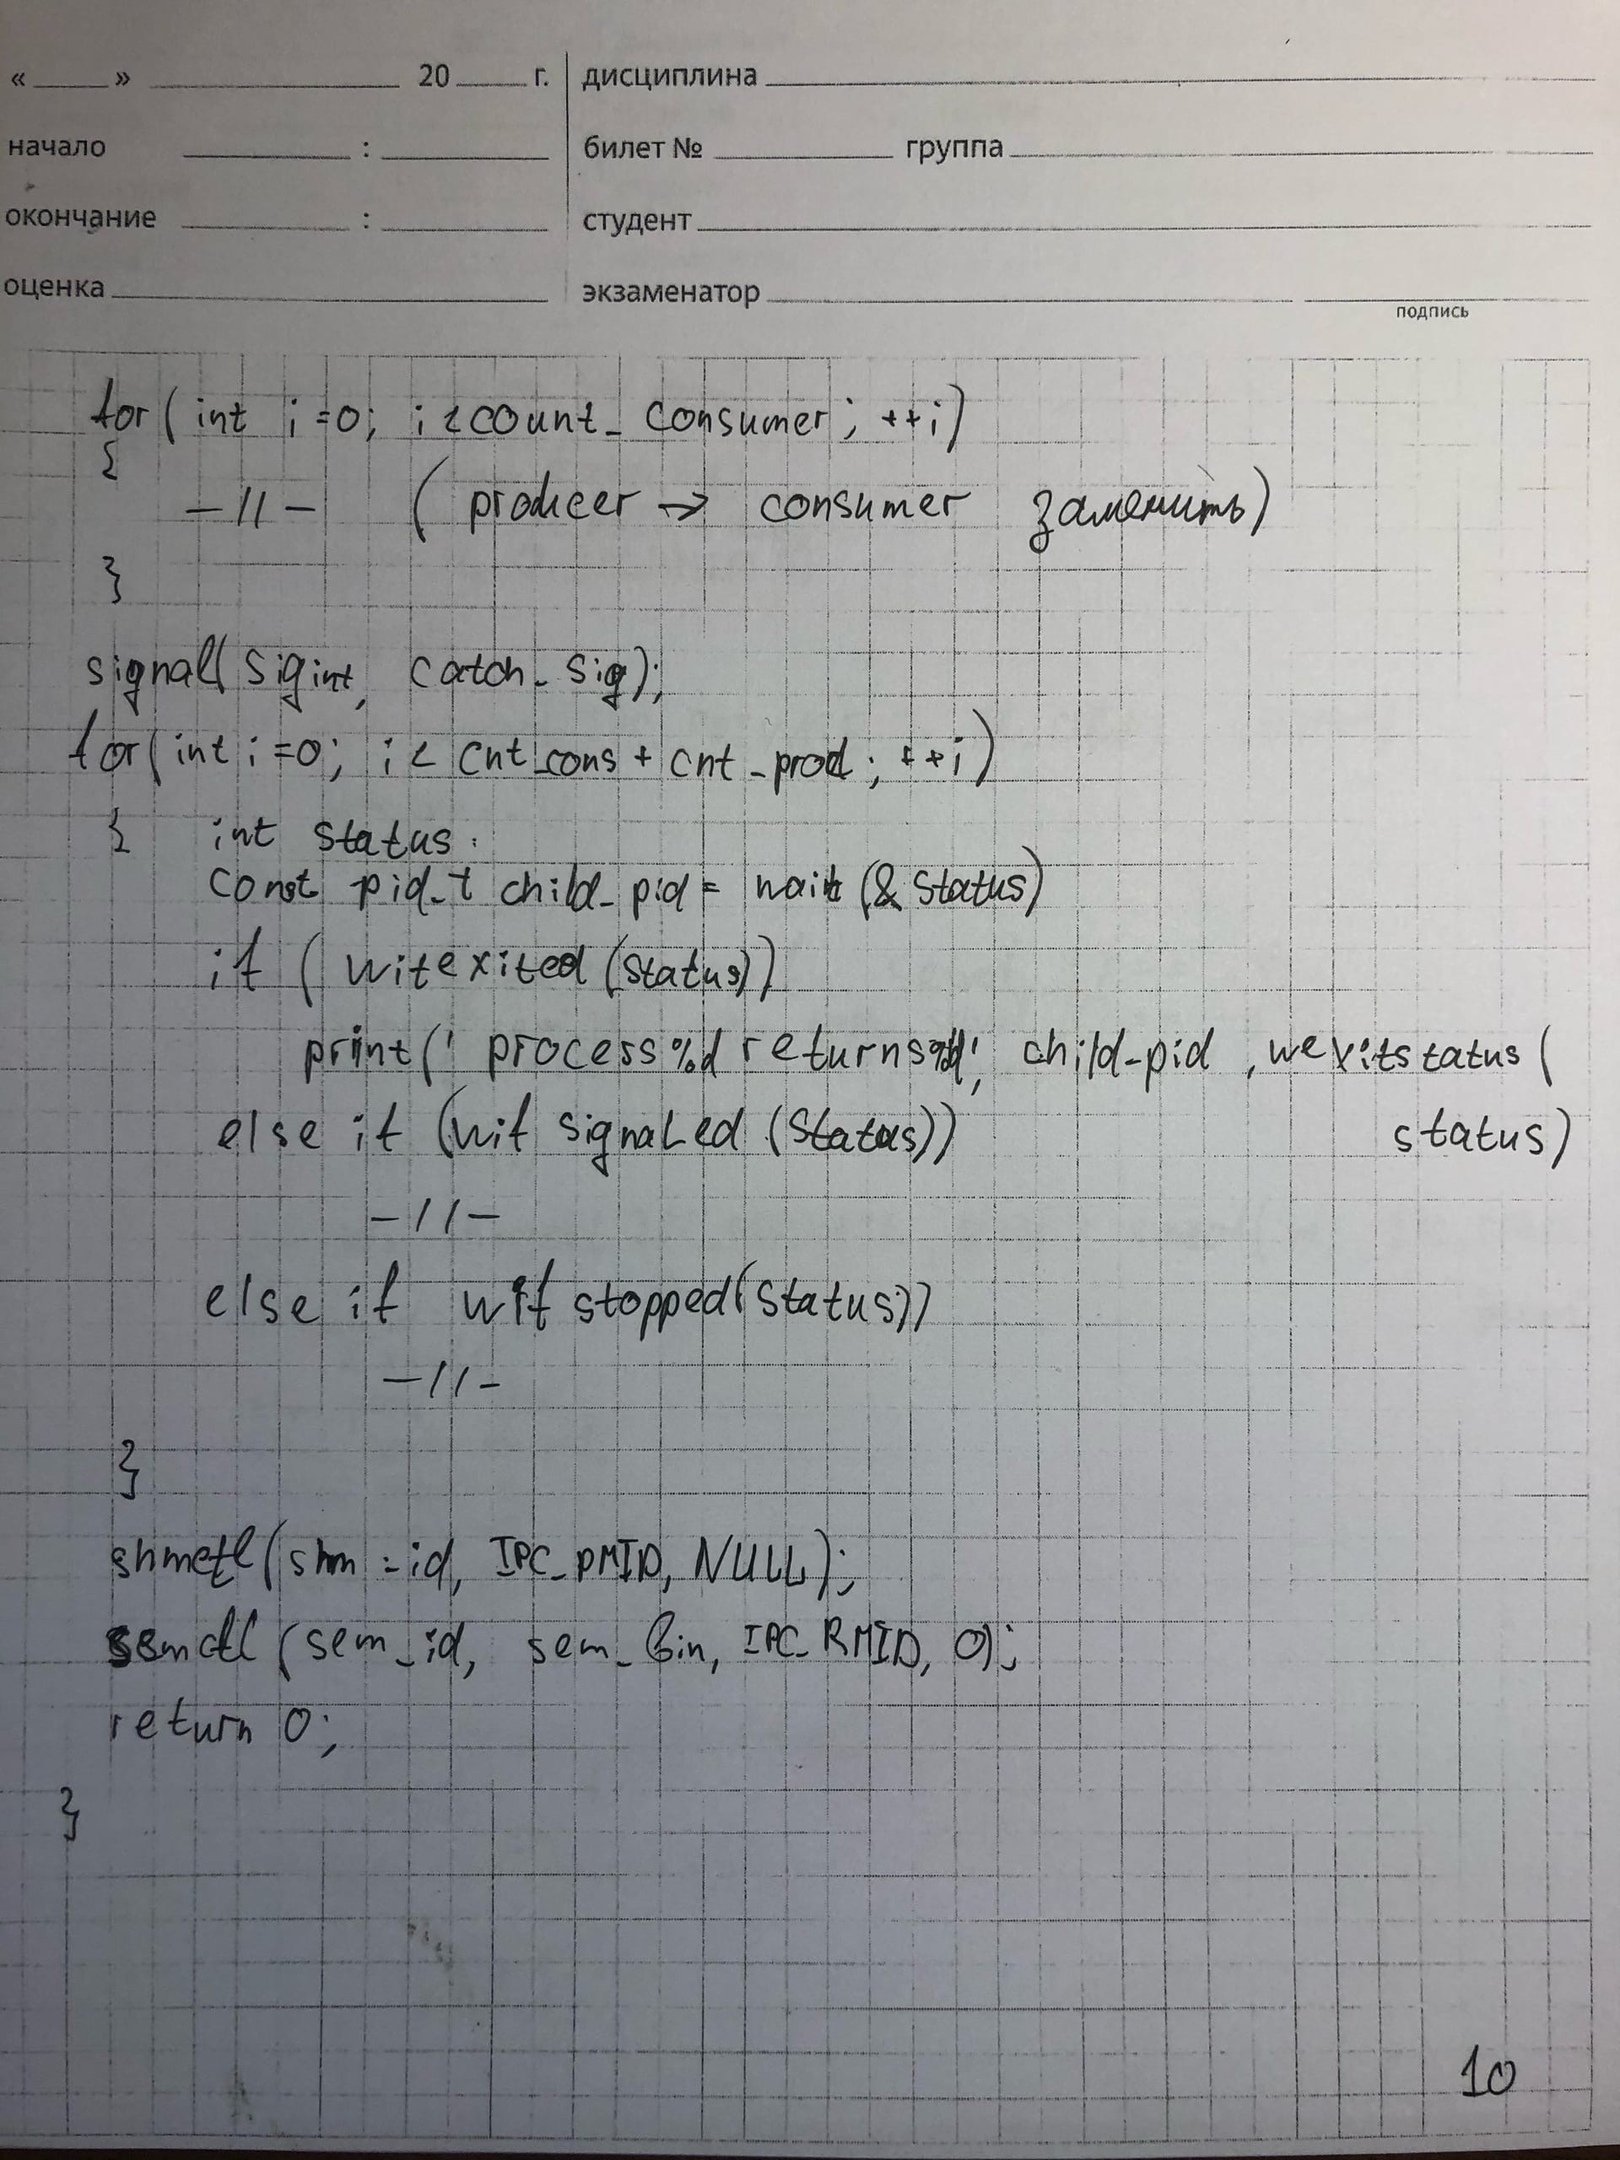 « ____ » ____ 20 ____ г. дисциплина
начало ____ : ____ билет № ____ группа
окончание ____ : ____ студент
оценка ____ экзаменатор
подпись
for( int i=0; i<count_ consumer; ++i)
{
—//— ( producer → consumer заменить)
}
signal( sigint, catch_sig);
for( int i=0; i< cnt_cons + cnt_prod; ++i)
{ int status.
const pid_t child_pid = wait (& status)
if ( wifexited (status))
print(' process%d returns%d', child_pid , wexitstatus (
else if (wif signaled (status)) status)
—//—
else if wif stopped(status))
—//—
}
shmctl( shm_id, IPC_RMID, NULL);
semctl (sem_id, sem_bin, IPC_RMID, 0);
return 0;
}
10